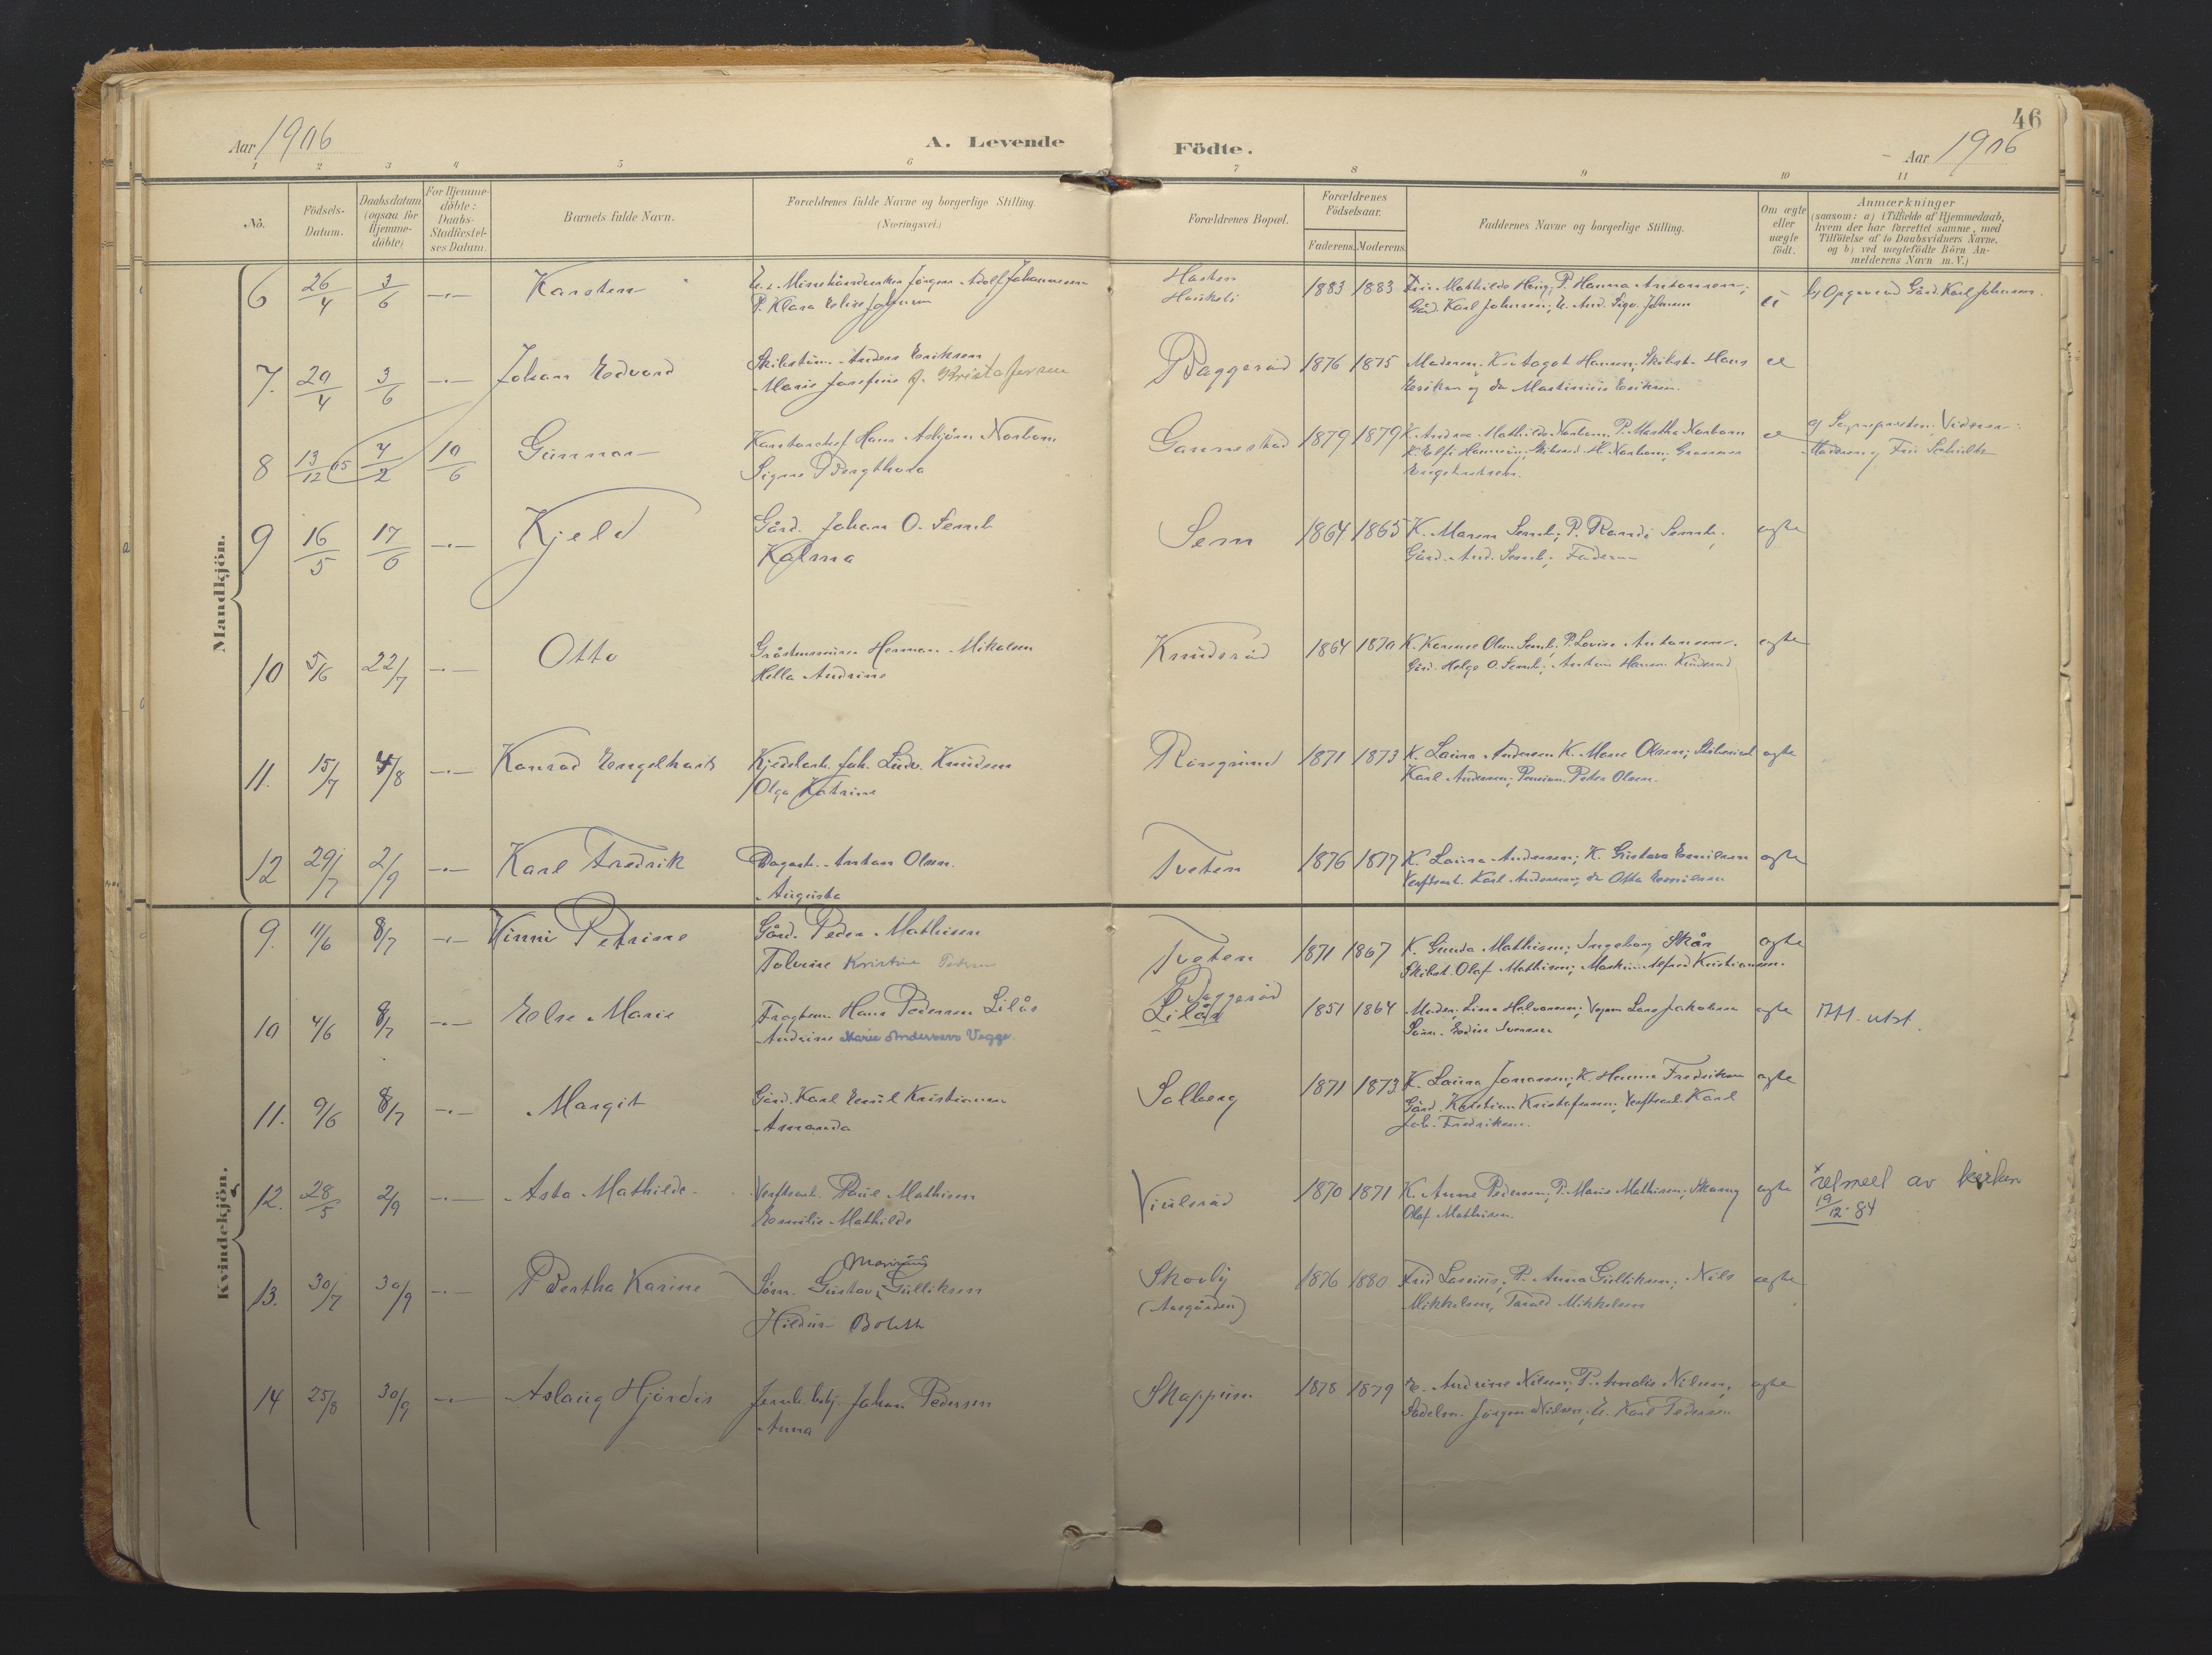 46
Aar 1906
A. Levende Födte.
Aar 1906
1 2 3 4 5 6 7 8 9 10 11
No.
Födsels-Datum.
Daabsdatum (ogsaa for Hjemme-döbte)
For Hjemme-döbte: Daabs-Stadfæstel-ses Datum.
Barnets fulde Navn.
Forældrenes fulde Navne og borgerlige Stilling.
(Næringsvei.)
Forældrenes Bopæl.
Forældrenes Födselsaar.
Faderens. Moderens.
Faddernes Navne og borgerlige Stilling.
Om ægte eller uægte födt.
Anmærkninger
(saasom: a) i Tilfælde af Hjemmedaab,
hvem der har forrettet samme, med
Tilföielse af to Daabsvidners Navne.
og b) ved uægtefödte Börn An-
melderens Navn m. V.)
Mandkjön.
6 26/4 3/6 -"- Karsten
Jörgen Adolf Johannessen
P. Klara Elise Johnsen
1883 1883 Mathilde P. Hanna Antonsen;
Gård. Karl Johnsen;
b) Opgave ved Gård. Karl Johnsen.
7. 29/4 3/6 -"- Johan Edvard
Anders Eriksen
Marie Josefine f. Kristofersen
Baggeröd 1876 1875 Moderen; K. Aagot Hansen; Skibst. Hans
Eriksen og do Martinius Eriksen.
8 13/12 05 4/2 10/6 Gunnar
Kontorchef Hans Asbjörn Norbom
Signe Bergthora
Gannestad 1879 1879 K. Andrea Mathilde Norbom; P. Martha Norbom
a) Sogneprest Videren:
Moderen og
9 16/5 17/6 -"- Kjeld
Gård. Johan O. Semb
Kalma
Sem 1864 1865 K. Maren Semb; P. Randi Semb;
Gård. And. Semb; Faderen
ægte
10 5/6 22/7 -"- Otto
Herman Mikalsen
Hella Andrine
Knudsröd 1864 1870 K. Karense Olsen Semb; P. Lovise Antonsen.
Gård. Helge O. Semb; Anton Hansen Knudsröd
ægte
11. 15/7 4/8 -"- Konrad Engelhart
Kjedelarb. Joh. Ludv. Knudsen
Olga Katrine
Rörgrind 1871 1873 K. Laura Andersen K. Marie Olsen;
Karl Andersen; Pension. Peter Olsen.
ægte
12 29/7 2/9 -"- Karl Fredrik
Dagarb. Anton Olsen.
Augusta
Tveten 1876 1877 K. Laura Andersen; K. Gustava Emilsen
Verftsarb. Karl Andersen; do Otto Emilsen
ægte
Kvindekjön.
9. 11/6 8/7 -"- Vinni Petrine
Gård. Peder Mathisen
Tolvine Kristine Pedersen
Tveten 1871 1867 K. Gunda Mathisen; Ingeborg Skår
Skibst. Olaf Mathisen; Maskin. Alfred Kristiansen.
ægte
10 4/6 8/7 -"- Else Marie
Fragtem. Hans Pedersen Lilås
Andrine Marie Andersen Vegge.
Baggeröd
Lilås
1851 1864 Moder; Lina Halvorsen; Lars Jakobsen
ægte
Att. utst.
11. 9/6 8/7 -"- Margit
Gård. Karl Emil Kristiansen
Amanda
Solberg 1871 1873 K. Laura Jonassen; K. Hanna Fredriksen
Gård. Kristian Kristofersen; Verftsarb. Karl
Joh. Fredriksen.
ægte
12. 28/5 2/9 -"- Asta Mathilde
Verftsarb. Paul Mathisen
Emilie Mathilde
Viulsröd 1870 1871 K. Anne Pedersen; P. Marie Mathisen;
Olaf Mathisen.
ægte
utmelt av kirken
19/12-84
13. 30/7 30/9 -"- Bertha Karine
Marinus
Söm. Gustav Gulliksen
Hildur Boleth
Skovly
(Aasgården)
1876 1880 P. Anna Gulliksen; Nils
Mikkelsen, Tarald Mikkelsen
ægte
14 25/8 30/9 -"- Aslaug Hjördis
Jernb. betj. Johan Pedersen
Anna
Skoppum 1878 1879 Andrine Nilsen; P. Amalie Nilsen,
Sadelm. Jörgen Nilsen; U. Karl Pedersen
ægte